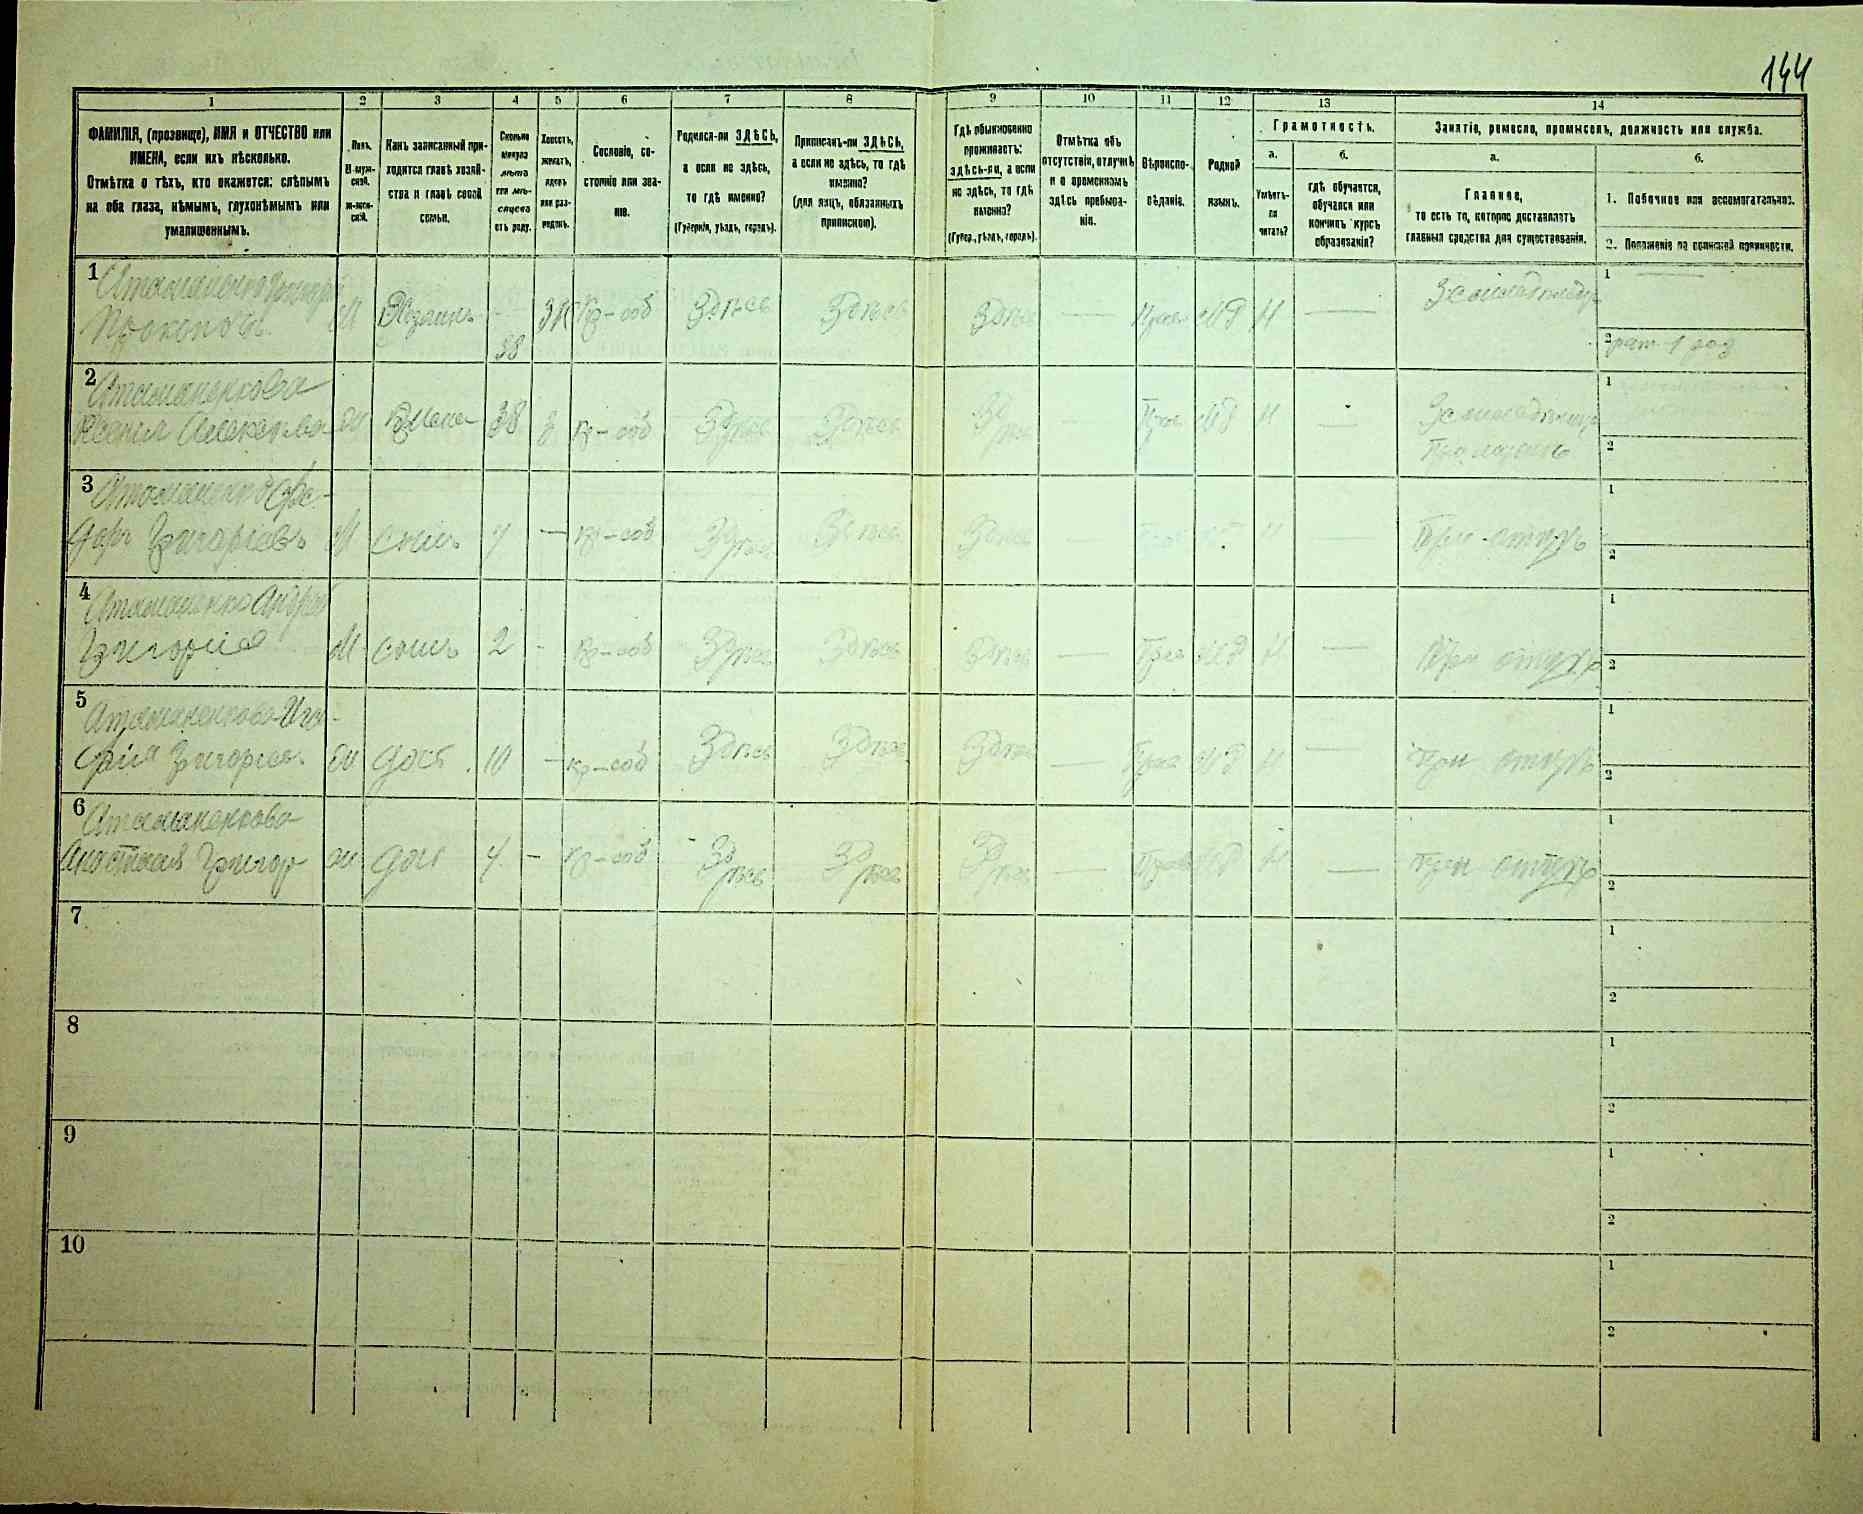 144
1 2 3 4 5 6 7 8 9 10 11 12 13 14
ФАМИЛІЯ, (прозвище), ИМЯ и ОТЧЕСТВО или
ИМЕНА, если ихъ нѣсколько.
Отмѣтка о тѣхъ, кто окажется: слѣпымъ
на оба глаза, нѣмымъ, глухонѣмымъ или
умалишеннымъ.
Полъ.
М-муж-
ской.
ж-жен-
скій.
Какъ записанный при-
ходится главѣ хозяй-
ства и главѣ своей
семьи.
Сколько
минуло
лѣтъ
или мѣ-
сяцевъ
отъ роду.
Холостъ,
женатъ,
вдовъ
или раз-
веденъ.
Сословіе, со-
стояніе или зва-
ніе.
Родился-ли ЗДѢСЬ,
а если не здѣсь,
то гдѣ именно?
(Губернія, уѣздъ, городъ).
Приписанъ-ли ЗДѢСЬ,
а если не здѣсь, то гдѣ
именно?
(для лицъ, обязанныхъ
припискою).
Гдѣ обыкновенно
проживаетъ:
здѣсь-ли, а если
не здѣсь, то гдѣ
именно?
(Губер., уѣздъ, городъ).
Отмѣтка объ
отсутствіи, отлучкѣ
и о временномъ
здѣсь пребыва-
ніи.
Вѣроиспо-
вѣданіе.
Родной
языкъ.
Грамотность.
а.
Умѣетъ-
ли
читать?
б.
гдѣ обучается,
обучался или
кончилъ курсъ
образованія?
Занятіе, ремесло, промыселъ, должность или служба.
а.
Главное,
то есть то, которое доставляетъ
главныя средства для существованія.
б.
1. Побочное или вспомогательное.
2. Положеніе по воинской повинности.
1 Атаманенко Григорій
Прокоповъ М Хозяинъ 38 Ж Кр-соб Здѣсь Здѣсь Здѣсь — Прав М Н —
1 —
2 рат 1 раз
2 Атаманенкова
Ксенія Алексѣева Ж Жена 38 З Кр-соб Здѣсь Здѣсь Здѣсь — Прав Н —
1
2
3 Атаманенко Фе-
доръ Григорьевъ М сынъ — Кр-соб Здѣсь Здѣсь Здѣсь Н — При отцѣ
1
2
4 Атаманенко Андрей
Григорьев М сынъ 2 - Кр-соб Здѣсь Здѣсь Здѣсь — Прав Н — При отцѣ
1
2
5 Атаманенкова
Григорьев Ж доч 10 - Кр-соб Здѣсь Здѣсь Здѣсь — Прав Н — При отцѣ
1
2
6 Атаманенкова
Анастасія Григор Ж доч 4 - Кр-соб Здѣсь Здѣсь Здѣсь — Прав Н — При отцѣ
1
2
7
1
2
8
1
2
9
1
2
10
1
2